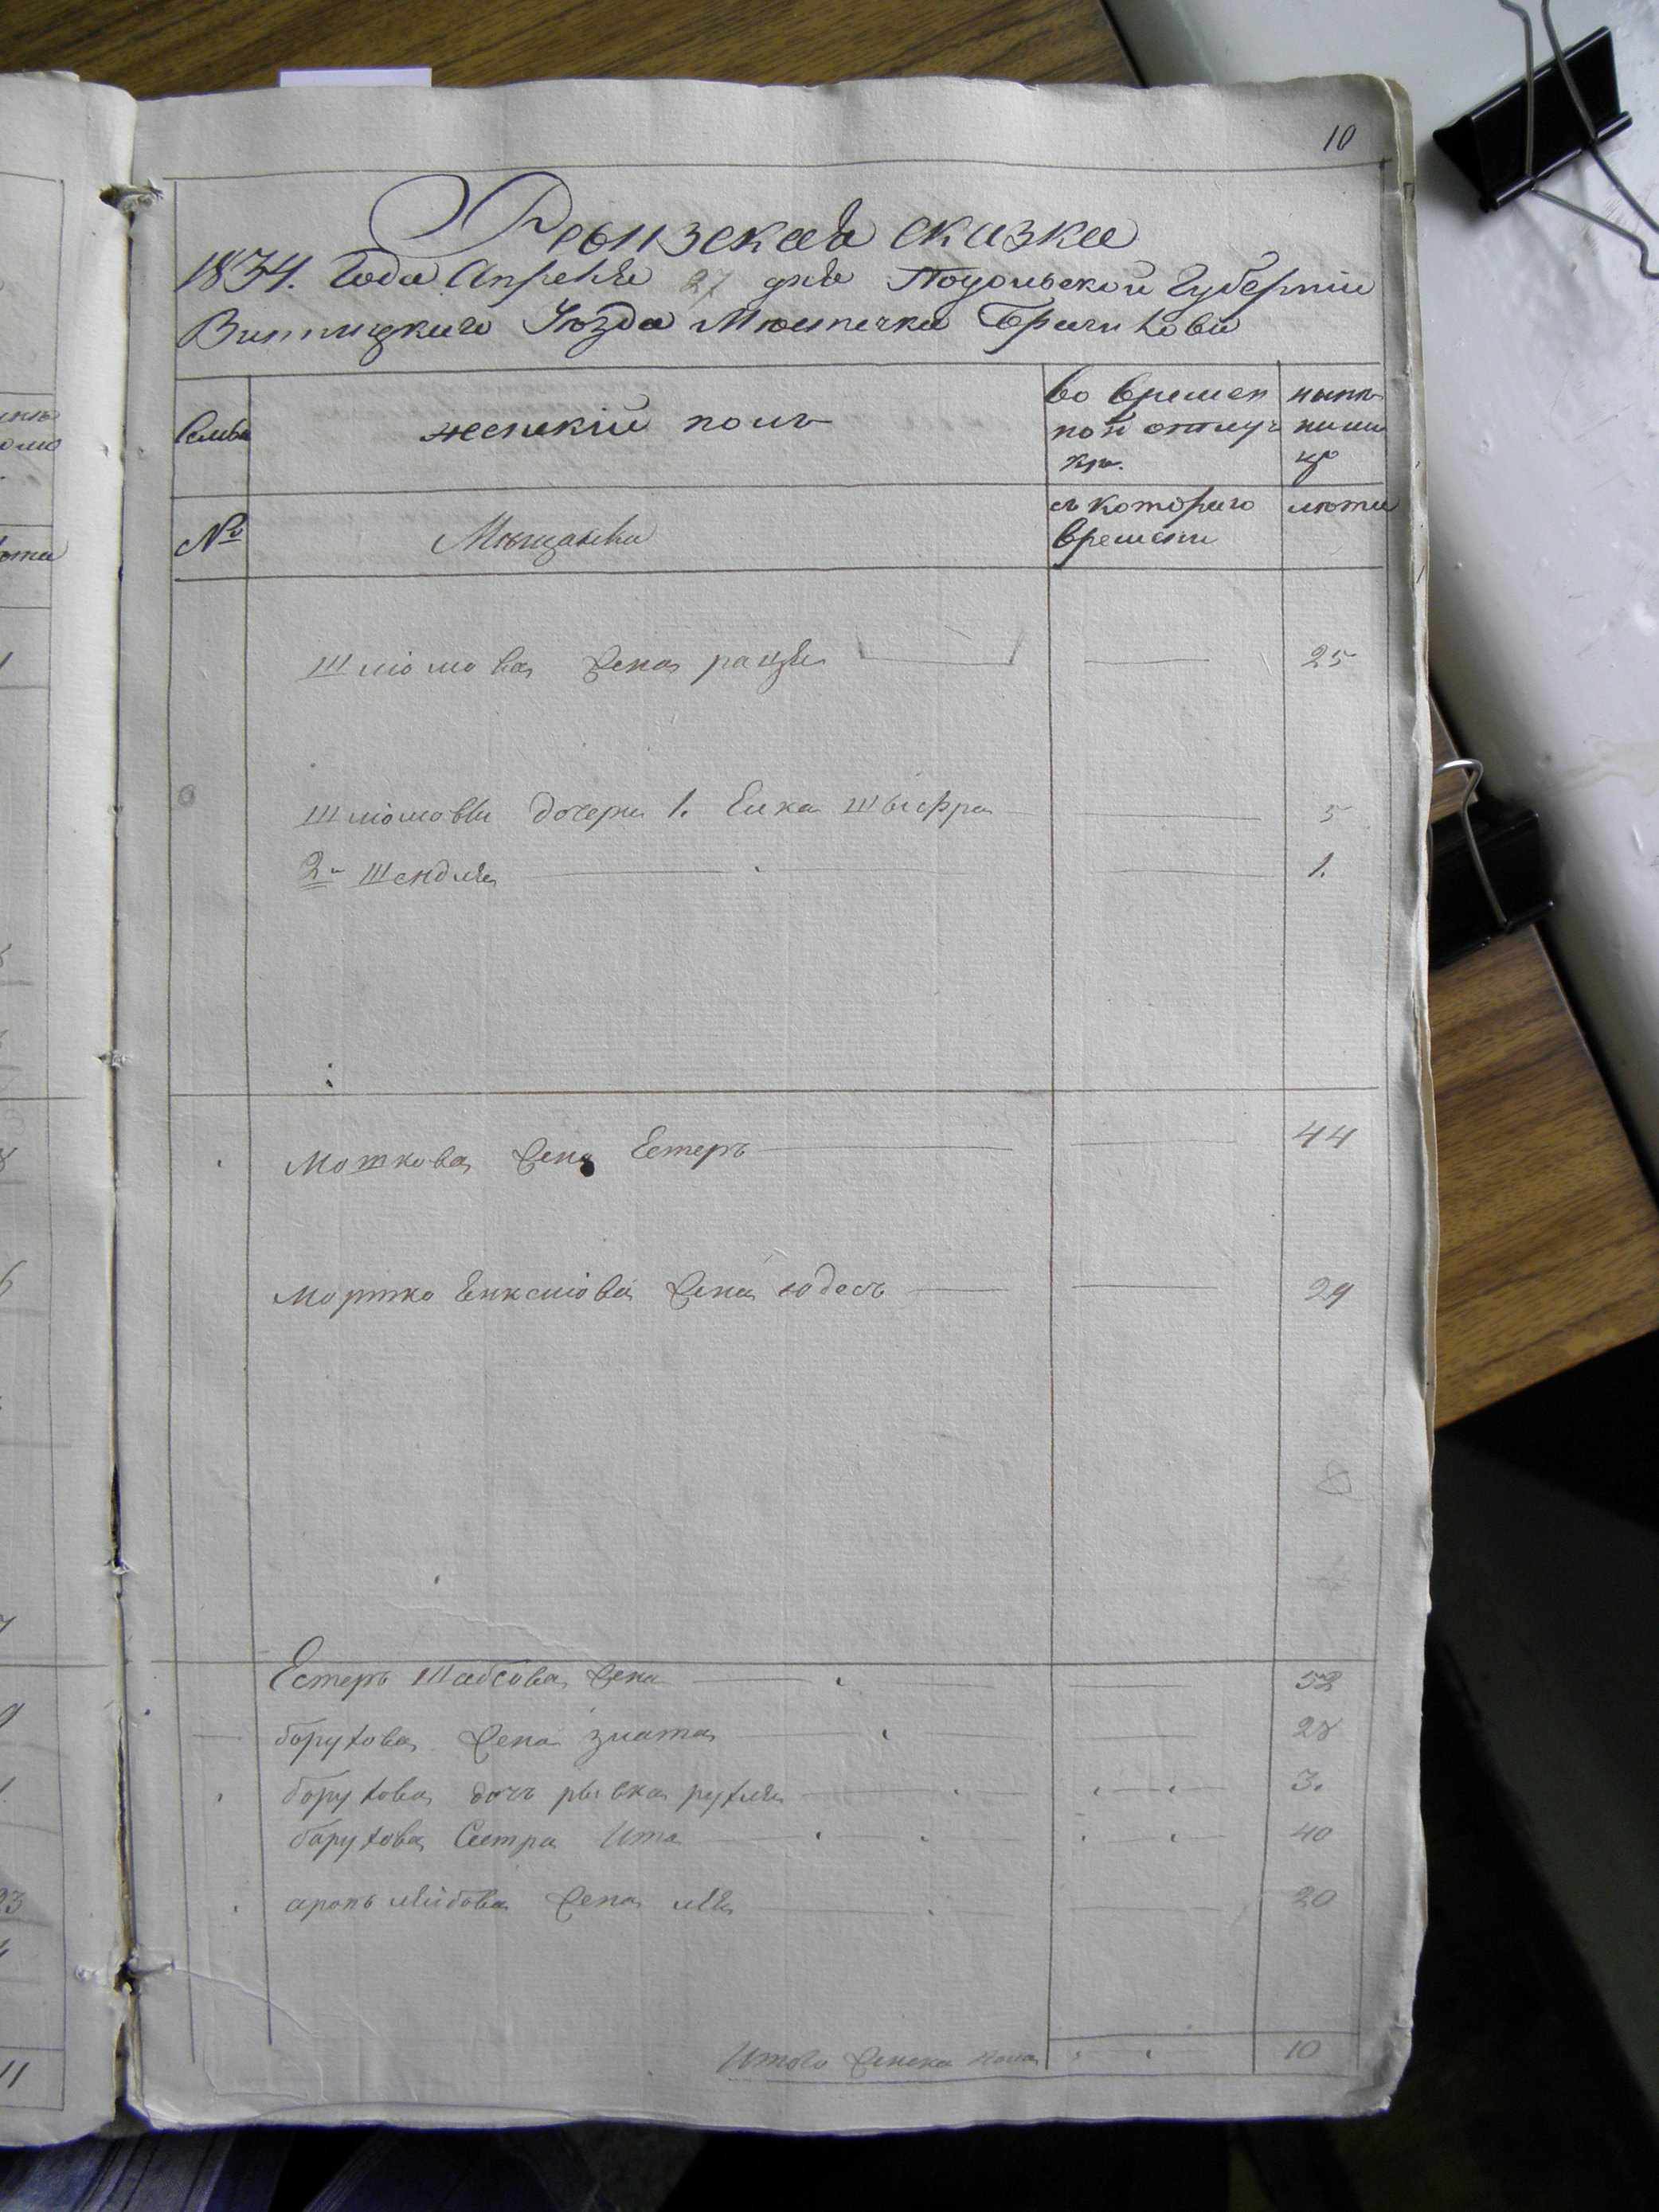 10
Ревизская сказка
1834. Года Апреля 27 дня Подольской Губернiи
Винницкаго Уѣзда Мѣстечка Браилова
Семьи
женскiй полъ
во времен
ной отлуч
кѣ.
нынѣ
на ли
цо
№
Мѣщанки
съ котораго
времени
лѣта
Шлiомова жена рандя 25
Шлiомовы дочери 1. Еика шыфра 5
2я Шендля 1.
Мошкова жена Естеръ 44
Мортко жена юдесъ 29
Естеръ Шабсова жена 52
борухова жена злата 28
борухова дочь рывка рухля 3.
борухова Сестра Ита 40
аронъ лейбова жена лея 20
Итого женска пола 10
11